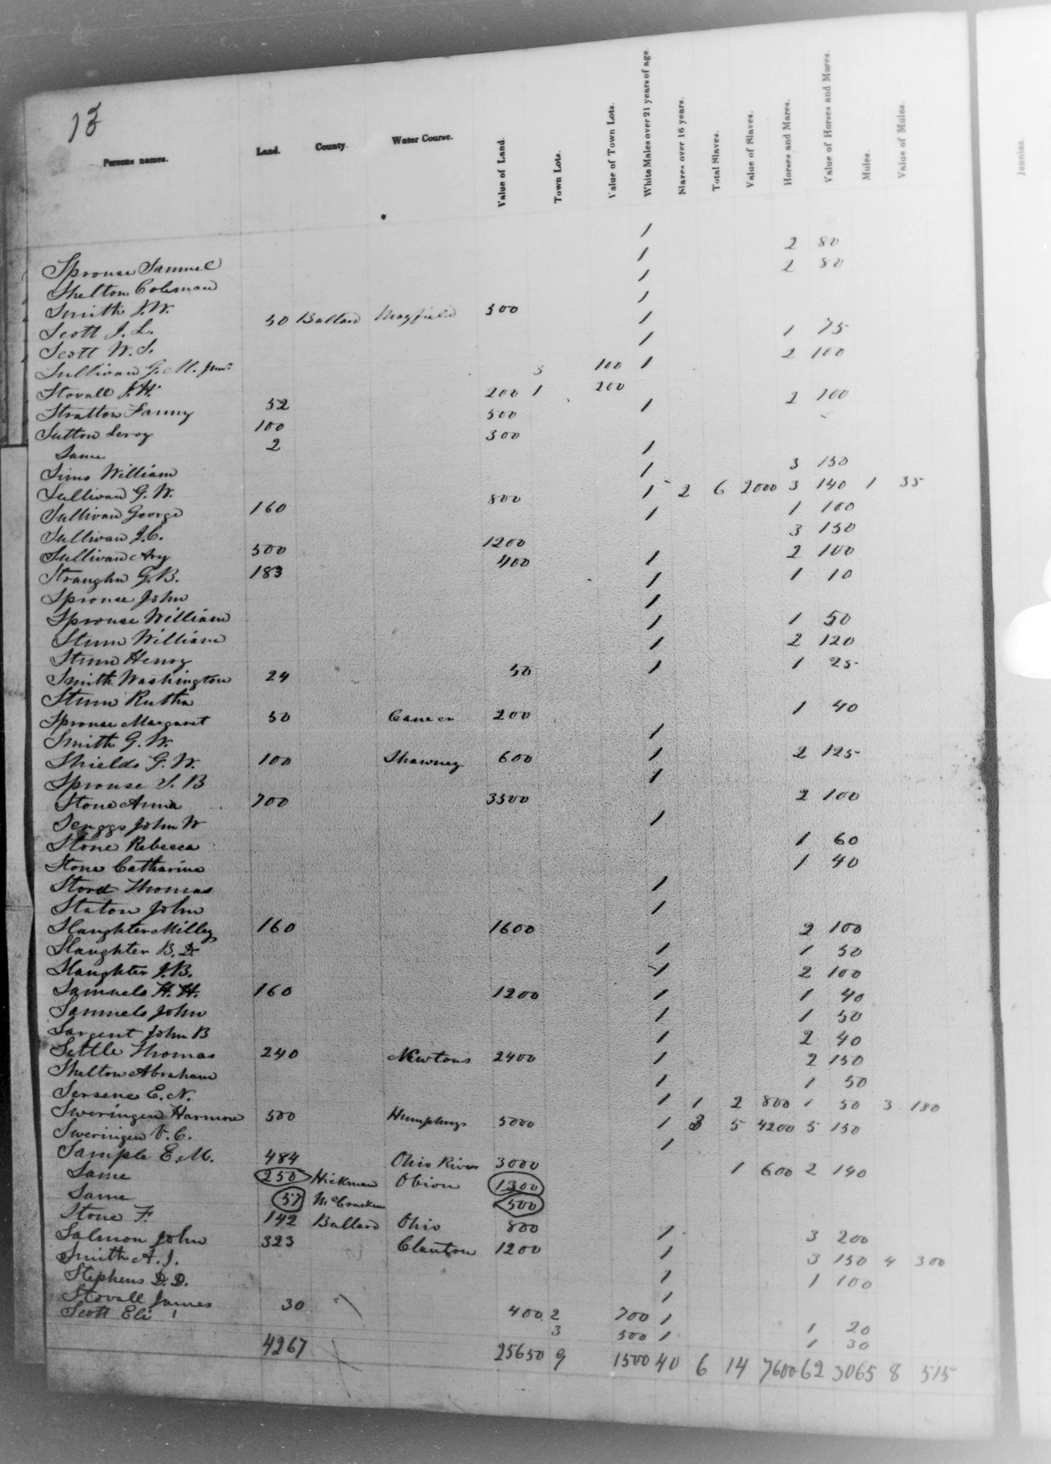 13
Persons names. Land. County Water Course. Value of Land. Town Lots. Value of Town Lots. White Males over 21 years of age. Slaves over 16 years. Total Slaves. Value of Slaves. Horses and Mares. Value of Horses and Mares. Mules. Value of Mules. Jennies.
Sprouse Samuel 1
Shelton Coleman 1 2 80
Smith J. W. 1 2 80
Scott J. L. 50 Ballard Mayfield 500 1
Scott W. S. 1
Sullivan G. M. Junr 1 1 75
Stovall J. H. 3 100 1 2 100
Stratton Fanny 52 200 1 200
Sutton Leroy 100 500 1 2 100
Same 2 300
Sims William 1
Sullivan G. W. 1 3 150
Sullivan George 160 800 1 2 6 2000 3 140 1 35
Sullivan J. C. 1 1 100
Sullivan Avy 500 1200 3 150
Straughn G. B. 183 400 1 2 100
Sprouse John 1 1 10
Sprouse William 1
Stum William 1 1 50
Stum Henry 1 2 120
Smith Washington 24 50 1 1 25
Stum Rutha
Sprouse Margaret 50 200 1 40
Smith G. W. 1
Shields G. W. 100 Shawney 600 1 2 125
Sprouse S. B 1
Stone Anna 700 3500 2 100
John W 1
Stone Rebecca 1 60
Stone Catharine 1 40
Thomas 1
Staton John 1
Slaughter Milley 160 1600 2 100
Slaughter B. D 1 1 50
Slaughter J. B. 1 2 100
Samuels H. H. 160 1200 1 1 40
Samuels John 1 1 50
Sargent John B 1 2 40
Settle Thomas 240 Newtons 2400 1 2 150
Shelton Abraham 1 1 50
E. N. 1 1 2 800 1 50 3 180
Sweringen Harmon 500 Humphreys 5000 1 3 5 4200 5 150
Sweringen V. C. 1
Sample E. M. 484 Ohio River 3000 1 600 2 140
Same 250 Hickman Obion 1300
Same 57 McCracken 500
Stone F. 142 Ballard Ohio 800 1 3 200
Salmon John 323 Clanton 1200 1 3 150 4 300
Smith A. J. 1 1 100
Stephens D. D. 1
Stovall James 30 400 2 700 1 1 20
Scott Eli 3 500 1 1 30
4267 25650 9 1500 40 6 14 7600 62 3065 8 515